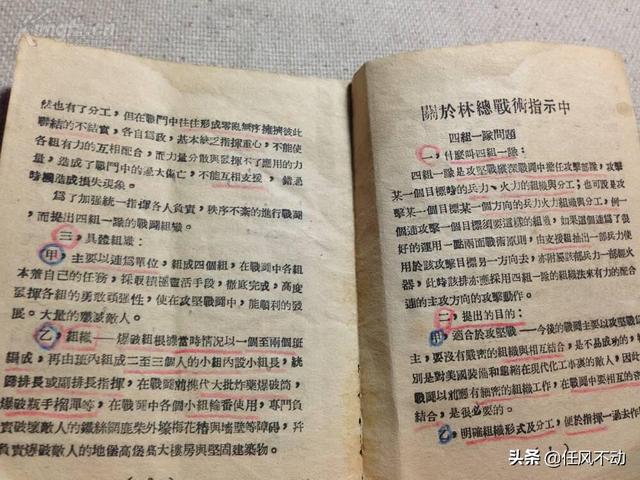 關於林總戰術指示中
四組一隊問題
一，什麼叫四組一隊：
四組一隊是攻堅戰縱深戰鬥中擔任攻擊部隊，攻擊
某一個目標時的兵力、火力的組織與分工，也可說是攻
擊某一個目標某一個方向的兵力火力組織與分工，例一
一個攻擊目標須要這樣的組息，如果這個連爲了很
好的運用一點兩面戰術原則，由支援組抽出一部兵力使
用於該攻擊目標另一方向去，亦附屬該部兵力一部
器，此時該排亦應採用四組一隊的組織法來有力的配合
連的主攻方向的攻擊動作。
二，提出的目的：
甲，適合於攻堅戰——今後的戰鬥主要以攻堅戰
主，要沒有嚴密的組織與相互結合，是不品成功的，
別是對美國裝備和龜縮在現代化工事裏的敵人，因
戰鬥以如應有細密的組織工作，在戰鬥中要相互的密
結合，是很必要的。
乙，明確組織形式及分工，便於指揮一過去作
然也有了分工，但在戰鬥中往往形成零亂無序擁擠彼此
聯結的不結實，各自爲政，基本缺乏指揮重心，不能使
各組有力的互相配合，而力量分散與發揮不了應用的力
量，造成了戰鬥中的過大傷亡，不能互相支援，錯過
時機造成損失現象。
爲了加強統一指揮各人負實，秩序不紊的進行戰鬥
而提出四組一隊的戰鬥組織。
三，具體組織：
甲，主要以連爲單位，組成四個組，在戰鬥中各組
本着自己的任務，採取積極靈活手段，徹底完成，高度
發揮各組的勇敢頑強性，使在攻堅戰鬥中，能順利的發
展。大量的殲滅敵人。
乙，組織——爆破組根據當時情况以一個至兩個班
組成，再由班內組成二至三個人的小組內設小組長，統
歸排長或副排長指揮，在戰鬥前携代大批炸藥爆破筒，
爆破瓶手榴彈等，在戰鬥中各個小組輪番使用，專門負
實破壞敵人的鐵絲網鹿柴外壕梅花樁與墻壁等障碍，幷
負實爆破敵人的地堡高堡莫大樓房與堅固建築物。
头条 @任风不动